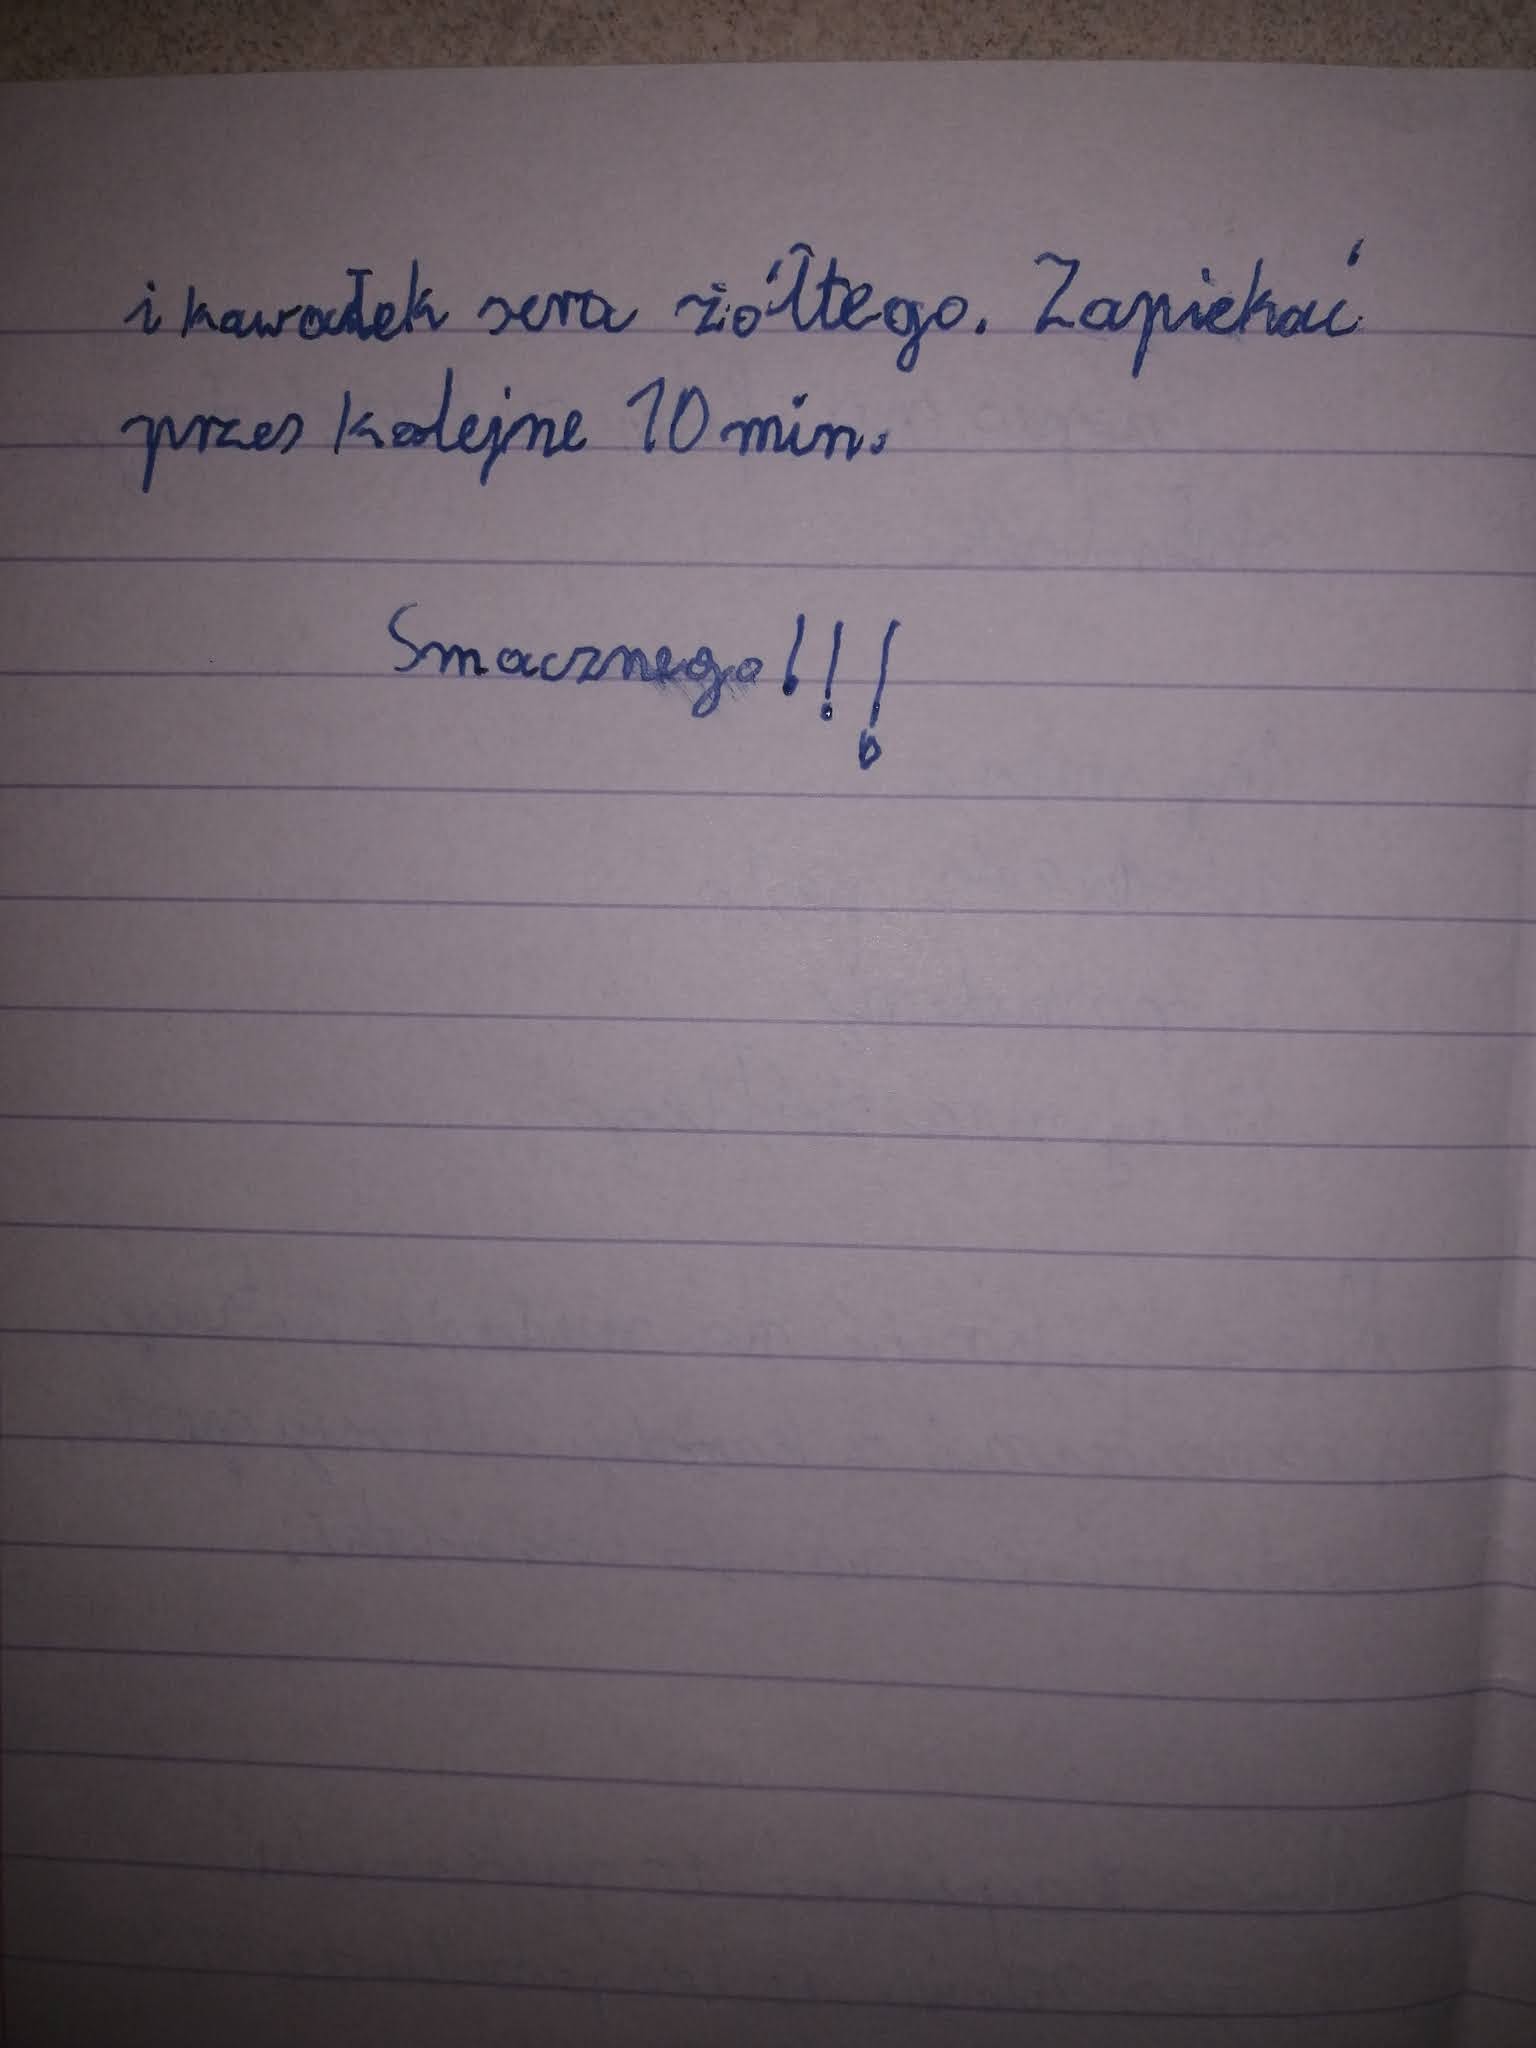 i kawałek sera żółtego. Zapiekać
przes kolejne 10 min.
Smacznego!!!